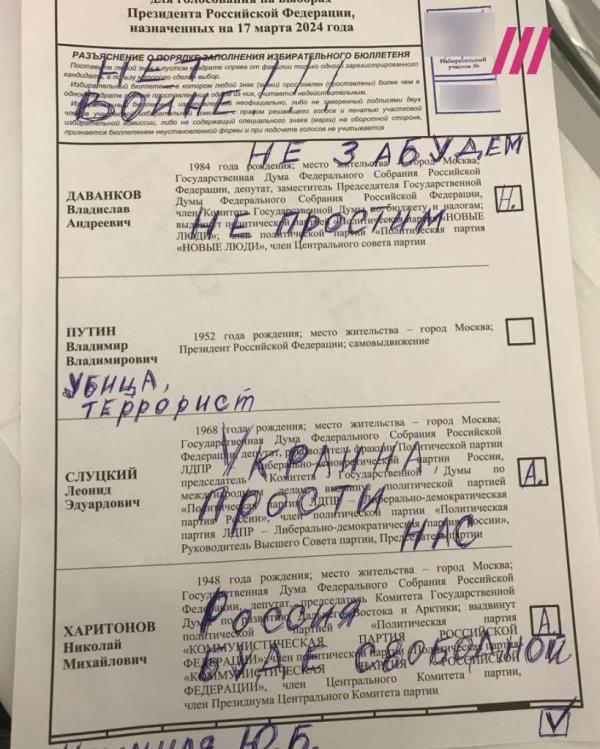 для голосования на выборах
Президента Российской Федерации,
назначенных на 17 марта 2024 года
Избирательный
участок №
НЕТ !!!
РАЗЪЯСНЕНИЕ О ПОРЯДКЕ ЗАПОЛНЕНИЯ ИЗБИРАТЕЛЬНОГО БЮЛЛЕТЕНЯ
Поставьте любой знак в пустом квадрате справа от фамилии только одного зарегистрированного
кандидата, в пользу которого сделан выбор.
Избирательный бюллетень, в котором любой знак (знаки) проставлен (проставлены) более чем в
одном квадрате либо не проставлен ни в одном из них, считается недействительным.
ВОЙНЕ
Избирательный бюллетень, изготовленный неофициально, либо не заверенный подписями двух
членов участковой избирательной комиссии с правом решающего голоса и печатью участковой
избирательной комиссии, либо не содержащий специального знака (марки) на оборотной стороне,
признается бюллетенем неустановленной формы и при подсчете голосов не учитывается
НЕ ЗАБУДЕМ
ДАВАНКОВ
Владислав
Андреевич
1984 года рождения; место жительства – город Москва;
Государственная Дума Федерального Собрания Российской
Федерации, депутат, заместитель Председателя Государственной
Думы Федерального Собрания Российской Федерации,
член Комитета Государственной Думы по бюджету и налогам;
выдвинут политической партией «Политическая партия «НОВЫЕ
ЛЮДИ»; член политической партии «Политическая партия
«НОВЫЕ ЛЮДИ», член Центрального совета партии
Н.
НЕ ПРОСТИМ
ПУТИН
Владимир
Владимирович
1952 года рождения; место жительства – город Москва;
Президент Российской Федерации; самовыдвижение
УБИЦА,
ТЕРРОРИСТ
СЛУЦКИЙ
Леонид
Эдуардович
1968 года рождения; место жительства – город Москва;
Государственная Дума Федерального Собрания Российской
Федерации, депутат, руководитель фракции Политической партии
ЛДПР – Либерально-демократической партии России,
председатель Комитета Государственной Думы по
международным делам; выдвинут политической партией
«Политическая партия ЛДПР – Либерально-демократическая
партия России»; член политической партии «Политическая
партия ЛДПР – Либерально-демократическая партия России»,
Руководитель Высшего Совета партии, Председатель партии
А.
УКРАИНА
ПРОСТИ
НАС
ХАРИТОНОВ
Николай
Михайлович
1948 года рождения; место жительства – город Москва;
Государственная Дума Федерального Собрания Российской
Федерации, депутат, председатель Комитета Государственной
Думы по развитию Дальнего Востока и Арктики; выдвинут
политической партией «Политическая партия
«КОММУНИСТИЧЕСКАЯ ПАРТИЯ РОССИЙСКОЙ
ФЕДЕРАЦИИ»; член политической партии «Политическая партия
«КОММУНИСТИЧЕСКАЯ ПАРТИЯ РОССИЙСКОЙ
ФЕДЕРАЦИИ», член Центрального Комитета партии,
член Президиума Центрального Комитета партии
А
РОССИЯ
БУДЕ СВОБОДНОЙ
Ю.Б.